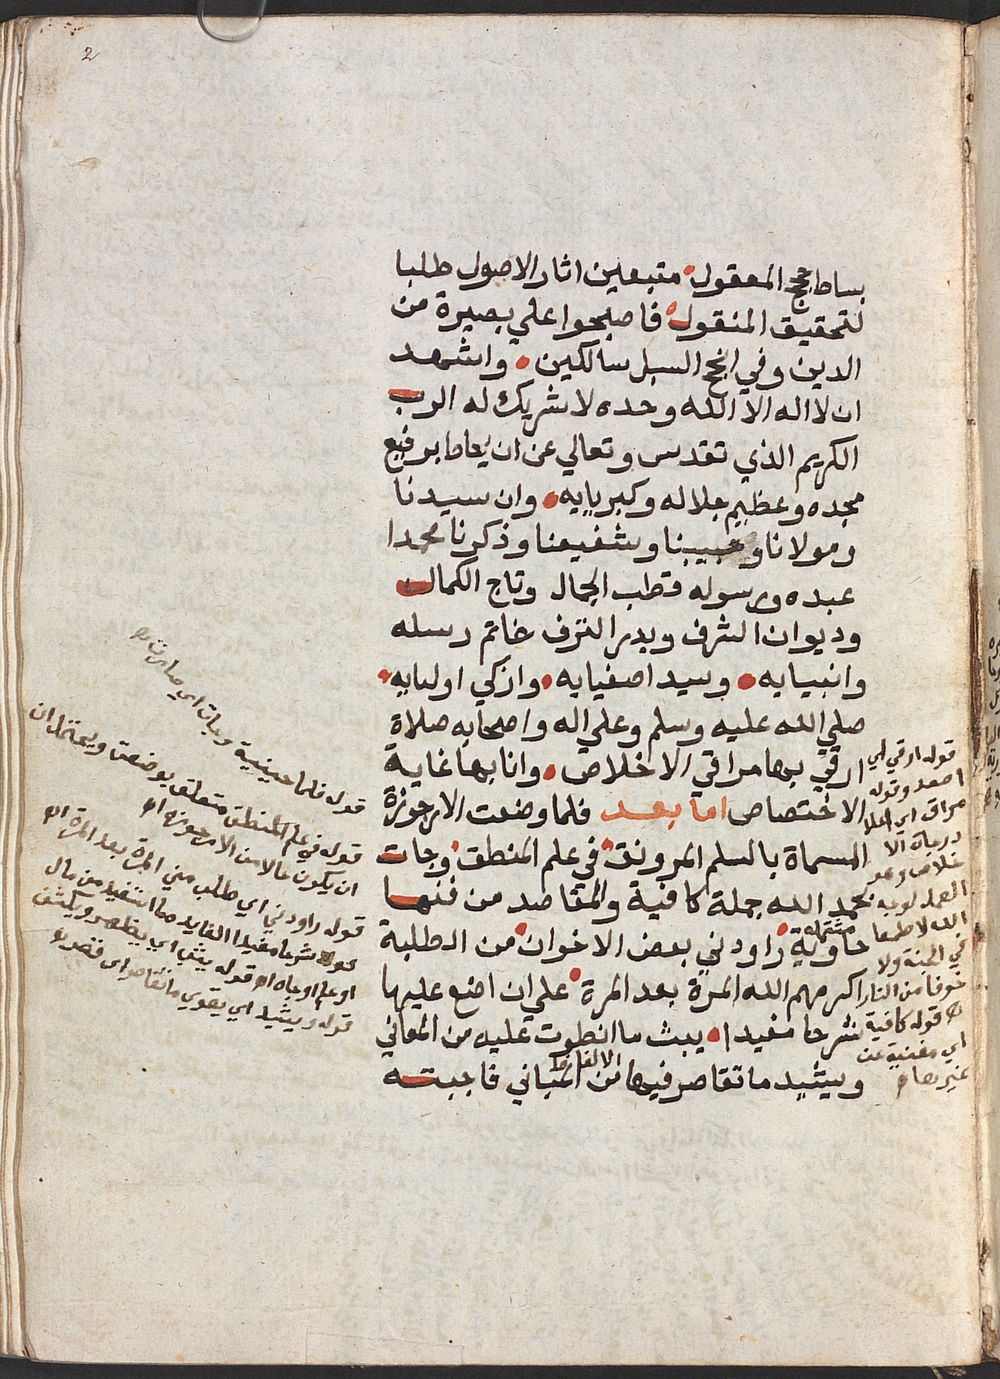 2
بساط حجج المعقول متبعين اثار الاصول طلبا
لتحقيق المنقول فاصبحوا علي بصيرة من
الدين وفي انجح السبل سالكين واشهد
ان لا اله الا الله وحده لا شريك له الرب
الكريم الذي تقدس وتعالي عن ان يحاط برفيع
مجده وعظيم جلاله وكبريايه وان سيدنا
ومولانا وحبيبنا وشفيعنا وذكرنا محمدا
عبده ورسوله قطب الجمال وتاج الكمال
وديوان الشرف وبدر الترف خاتم رسله
وانبيايه وسيد اصفيايه وازكي اوليايه
صلي الله عليه وسلم وعلي اله واصحابه صلاة
ارقي بها مراقي الاخلاص وانا بها غاية
الاختصاص اما بعد فلما وضعت الارجوزة
المسماة بالسلم المرونق في علم المنطق وجات
بحمد الله جملة كافية والمقاصد من فنها
حاوية راودني بعض الاخوان من الطلبة
اكرمهم الله المرة بعد المرة علي ان اضع عليها
شرحا مفيدا يبث ما انطوت عليه من المعاني
ويشيد ما تقاصر فيها من الالفاظ المباني فاجبته
مشتملة
قوله ارقي اي
اصعد وقوله
مراقي اي اعلا
درجات الا
خلاص وهو
العمل لوجه
الله لا طمعا
في الجنة ولا
خوفا من النار
قوله كافية
اي مغنية عن
غيرها
قوله فلما حينية وجات اي صارت
قوله في علم المنطق متعلق بوضعت ويحتمل ان
ان يكون حالا من الارجوزة اه
قوله راودني اي طلب مني المرة بعد المرة اه
قوله شرحا مفيدا الفايدة ما استفيد من مال
او علم او جاه اه قوله يبث اي يظهر ويكشف
قوله ويشيد اي يقوي ما تقاصر اي قصر